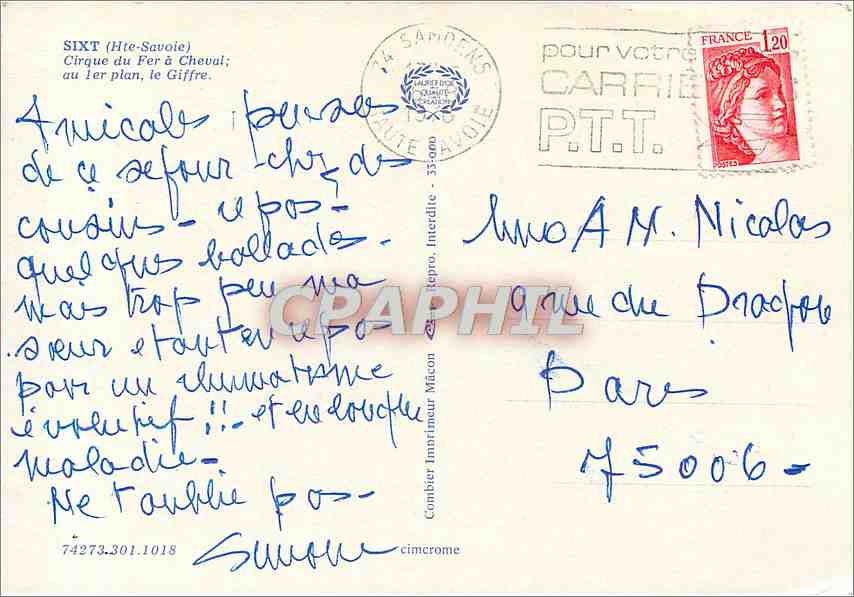 SIXT (Hte-Savoie)
Cirque du Fer à Cheval;
au 1er plan, le Giffre.
74 SAMOENS
HAUTE-SAVOIE
LAURIER D'OR
QUALITÉ
pour votre
CARRIE
P.T.T.
FRANCE 1,20
POSTES
Amicales pensées
de ce séjour chez des
cousins - repos -
quelques ballades -
mais trop peu ma
sœur étant en repos
pour un rhumatisme
évolutif !!! - et en longue
maladie -
Ne t'oublie pas -
Simone
A M. Nicolas
9 rue du Dragon
Paris
75006 -
Combier Imprimeur Mâcon
Repro. Interdite - 35.000
CPAPHIL
74273.301.1018
cimcrome